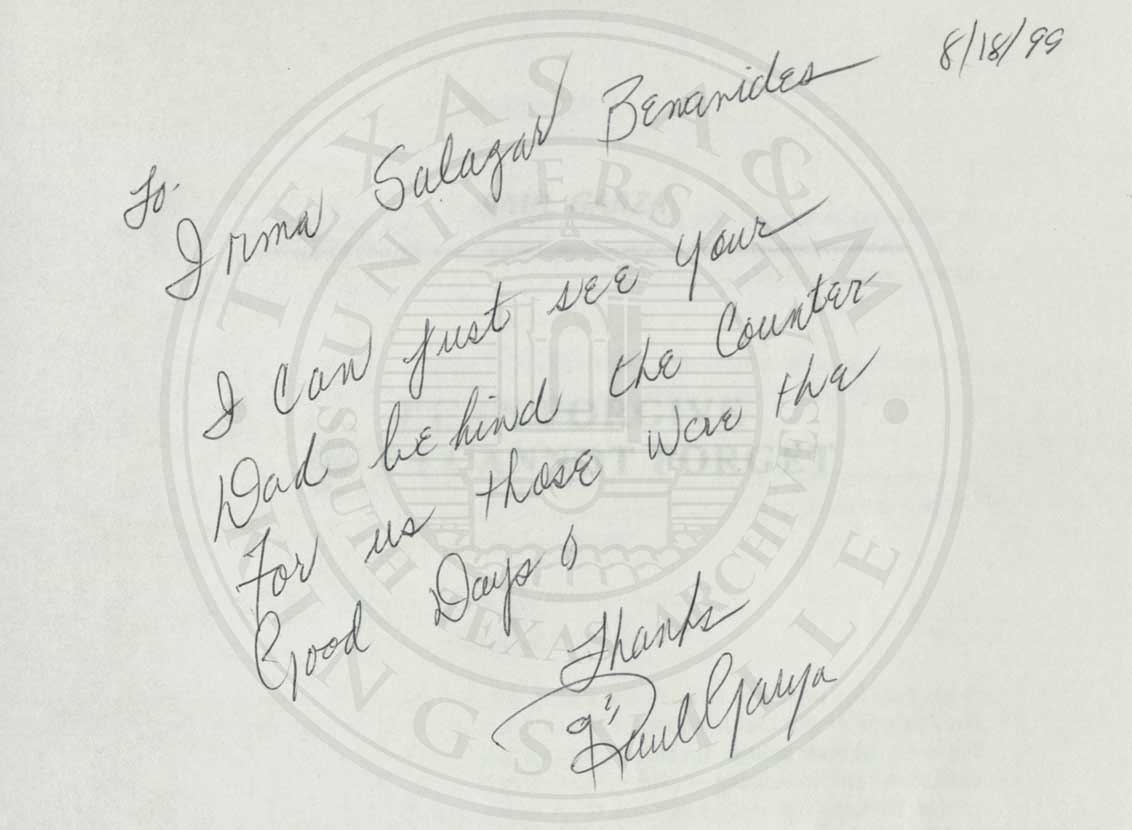 8/18/99
To.
Irma Salazar Benanides
I Can just see your
Dad behind the Counter
For us those were the
Good Days!
Thanks
Raul Garza
TEXAS A&M UNIVERSITY
KINGSVILLE
SOUTH TEXAS ARCHIVES